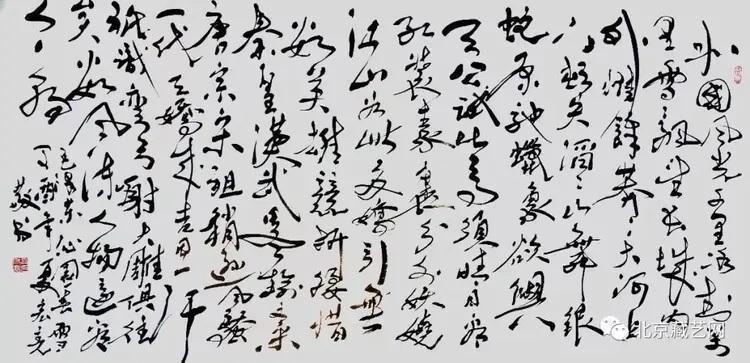 北國风光千里冰封万
里雪飘望长城内
外惟馀莽莽大河上
下顿失滔滔山舞银
蛇原驰蠟象欲與
天公试比高须晴日看
红装素裹分外妖娆
江山如此多娇引无
数英雄競折腰惜
秦皇漢武略输文采
唐宗宋祖稍逊风骚
一代天骄成吉思汗
祇識彎弓射大雕俱往
矣数风流人物还看
今朝
毛泽东沁园春雪
丁酉年夏
敬书
北京藏艺网